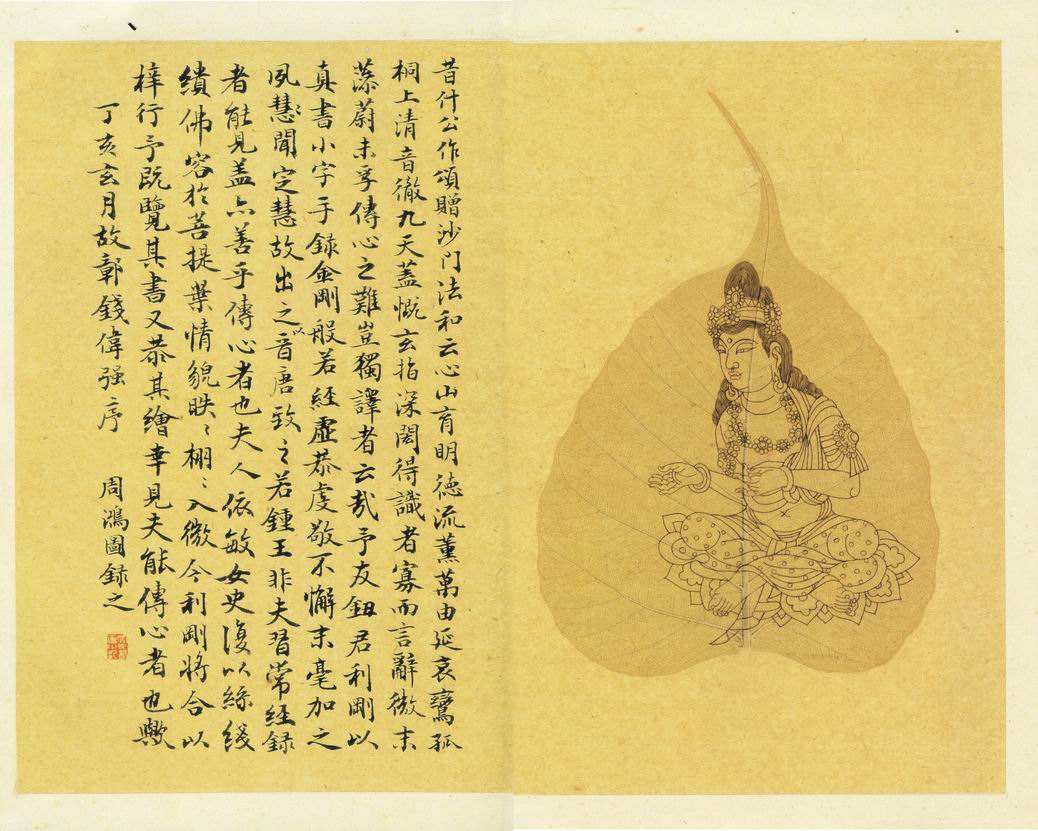 昔什公作頌贈沙門法和云心山育明徳流薫萬由延哀鸞孤
桐上清音徹九天蓋慨玄指深閎得識者寡而言辭微末
藻蔚未孚傳心之難豈獨譯者云哉予友鈕君利剛以
真書小字手録金剛般若經虛恭虔敬不懈末毫加之
夙慧聞定慧故出之以音唐致之若鍾王非夫習常經録
者能見蓋亦善乎傳心者也夫人依敏女史復以絲綫
繢佛容於菩提葉情貌昳昳栩栩入微今利剛將合以
梓行予既覽其書又恭其繪幸見夫能傳心者也歟
丁亥玄月故鄣錢偉强序 周鴻圖録之